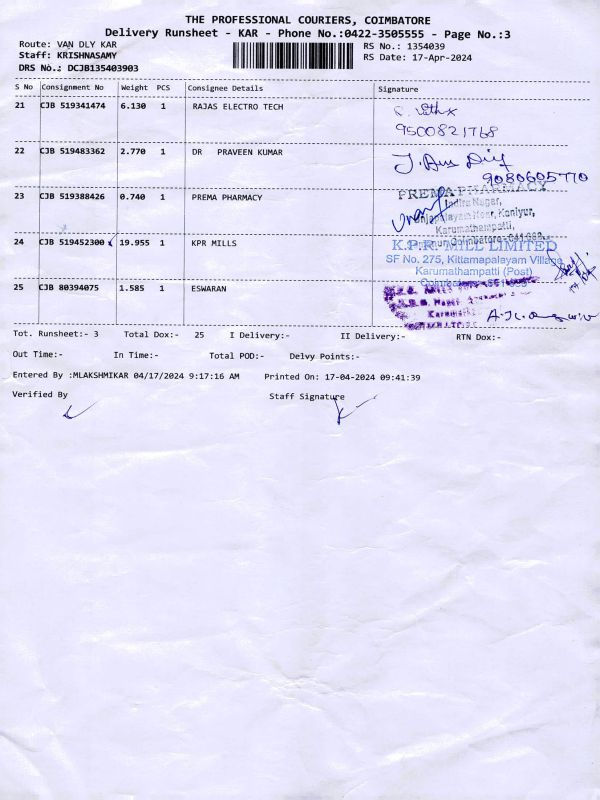 THE PROFESSIONAL COURIERS, COIMBATORE
Delivery Runsheet - KAR - Phone No.:0422-3505555 - Page No.:3
Route: VAN DLY KAR
RS No.: 1354039
Staff: KRISHNASAMY
RS Date: 17-Apr-2024
DRS No.: DCJB135403903
S No Consignment No Weight PCS Consignee Details Signature
21 CJB 519341474 6.130 1 RAJAS ELECTRO TECH
9500821768
22 CJB 519483362 2.770 1 DR PRAVEEN KUMAR
9080605770
23 CJB 519388426 0.740 1 PREMA PHARMACY
PREMA PHARMACY
Indira Nagar,
Kaniyur,
Karumathampatti,
24 CJB 519452300 19.955 1 KPR MILLS
K.P.R. MILL LIMITED
SF No. 275, Kittamapalayam Village
Karumathampatti (Post)
25 CJB 80394075 1.585 1 ESWARAN
Nagar
Tot. Runsheet:- 3 Total Dox:- 25 I Delivery:- II Delivery:- RTN Dox:-
Out Time:- In Time:- Total POD:- Delvy Points:-
Entered By :MLAKSHMIKAR 04/17/2024 9:17:16 AM Printed On: 17-04-2024 09:41:39
Verified By Staff Signature